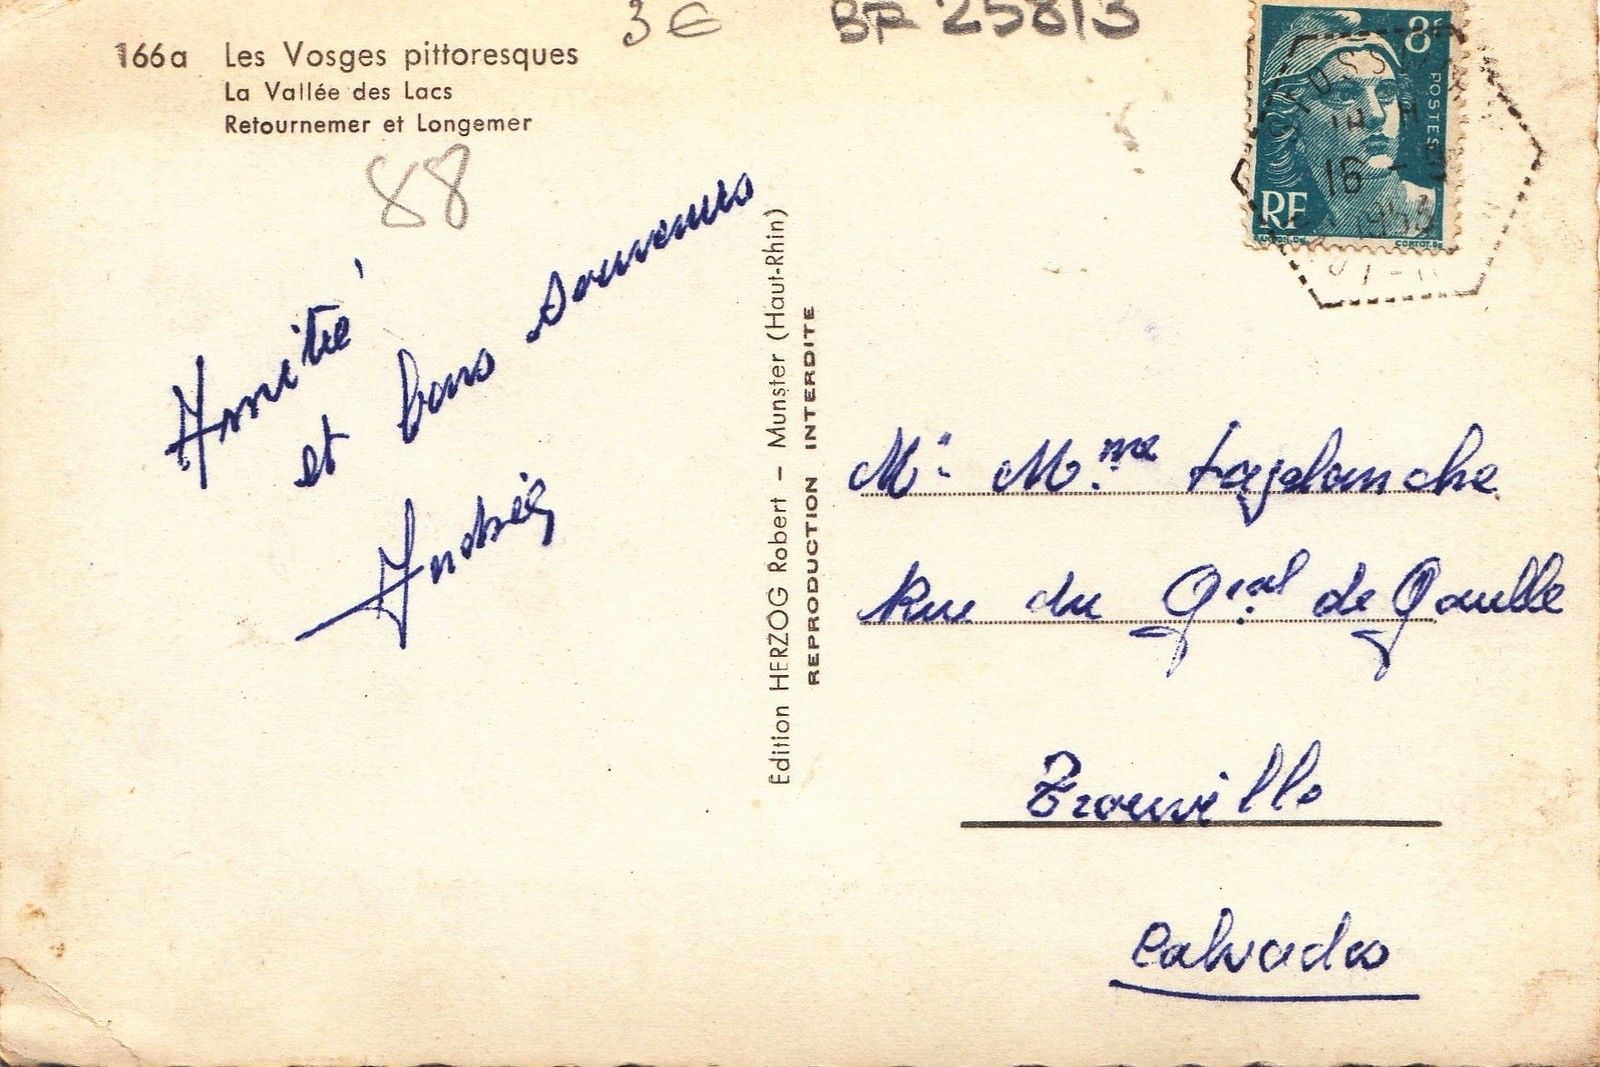 3€ BF 25813
166a Les Vosges pittoresques
La Vallée des Lacs
Retournemer et Longemer
88
Amitié
et bons souvenirs
Édition HERZOG Robert – Munster (Haut-Rhin)
REPRODUCTION INTERDITE
8F
POSTES
RF
16 -
Mr. Mme
Rue du Gral de Gaulle
Trouville
Calvados